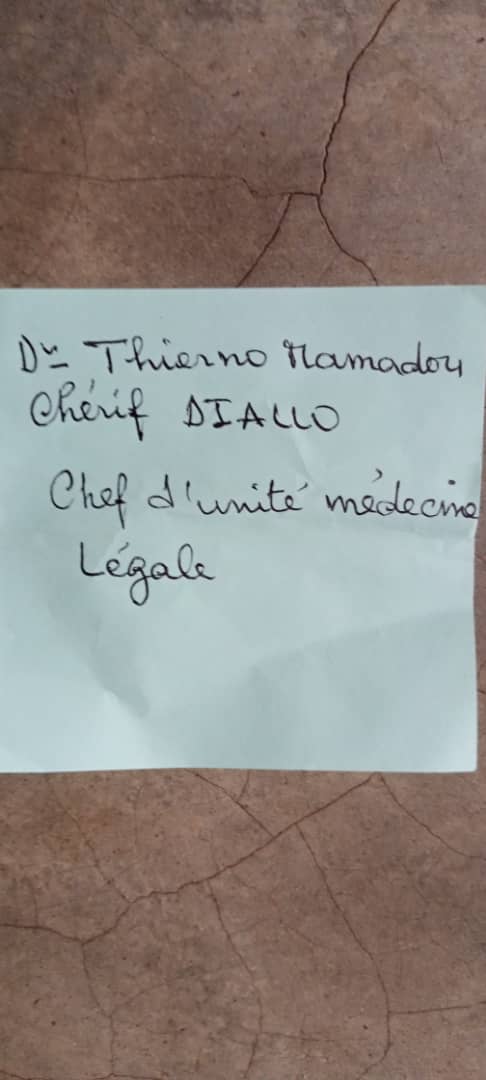 Dr Thierno Mamadou
Chérif DIALLO
Chef d'unité médecine
Légale